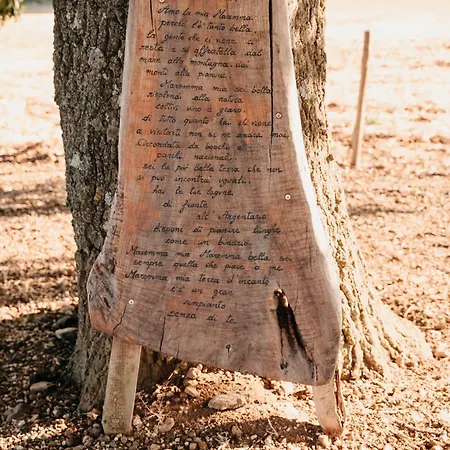 Amo la mia Maremma
perché l'è tanto bella
la gente che ci viene a
resta a si affratella dal
mare alla montagna, dai
monti alla pianura.
Maremma mia sei bella
risplendi alla natura
cottivi vino e grano.
di tutto quanto hai chi viene
a visitarti non se ne andrà mai
Circondata da boschi
parchi nazionali
sei la più bella terra che non
si può incontrar uguali.
hai le tue lagune
di fronte
all'Argentario
disponi di pianure lunghe
come un binario
Maremma mia Maremma bella sei
sempre quella che piace a me
Maremma mia terra d'incanto
c'è un gran
rimpianto
senza di te